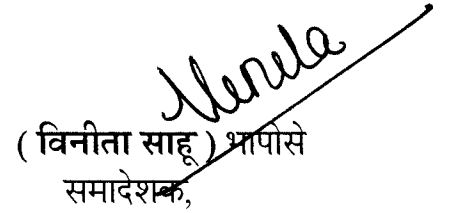 ( विनीता साहू ) भापोसे
समादेशक,